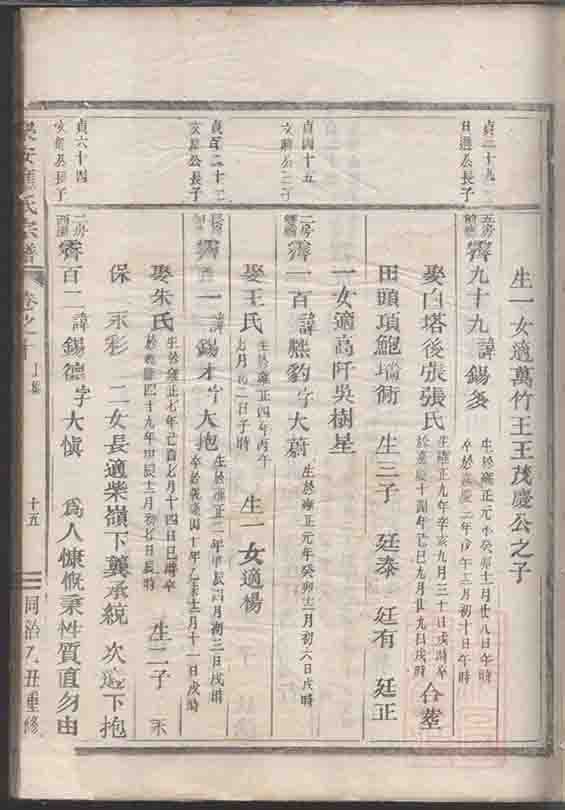 生一女適萬竹王王茂慶公之子
貞二十九
日進公長子
五房
霽九十九 諱錫多 生於雍正元年癸卯十一月廿八日午時
卒於嘉慶二年 三月初十日午時
娶白塔後張張氏 生雍正九年辛亥九月三十日戌時卒
於嘉慶十四年己巳九月廿九日戌時 合塟
田頭項鮑瑞術 生三子 廷泰 廷有 廷正
一女適高阡吳樹星
貞四十五
二房
霽一百 諱 豹字大蔚 生於雍正元年癸卯十二月初六日戌時
娶王氏 生於雍正四年丙午
七月初二日子時 生一女適楊
長子
霽百一 諱錫才字大抱 生於雍正二年甲辰四月初三日戌時
卒於乾隆四十年乙未十二月十一日戌時
娶朱氏 生於雍正七年己酉七月十四日巳時卒
於乾隆四十九年甲辰十二月初七日辰時 生二子 永
保 永彩 二女長適柴嶺下龔承統 次適下抱
貞六十四
長子
二房
霽百二 諱錫德字大慎 為人慷慨秉性質直勿由
氏宗譜 卷之十 上集 十五 同治乙丑重修